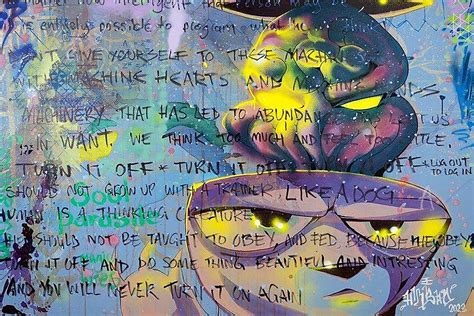 how intelligent that person may be
is entirely possible to program what
DON'T GIVE YOURSELF TO THESE MACHINE
WITH MACHINE HEARTS AND MACHINE MINDS
MACHINERY THAT HAS LED TO ABUNDAN HAS LEFT US
IN WANT. WE THINK TOO MUCH AND FEEL TOO LITTLE.
TURN IT OFF * TURN IT OFF IT OFF * LOG OUT
TO LOG IN
SHOULD NOT GROW UP WITH A TRAINER, LIKE A DOG
Soul
HUMAN IS A THINKING CREATURE
Parasite
HE SHOULD NOT BE TAUGHT TO OBEY, AND FED, BECAUSE HE OBEY
TURN IT OFF AND DO SOME THING BEAUTIFUL AND INTRESTING
AND YOU WILL NEVER TURN IT ON AGAIN
2023